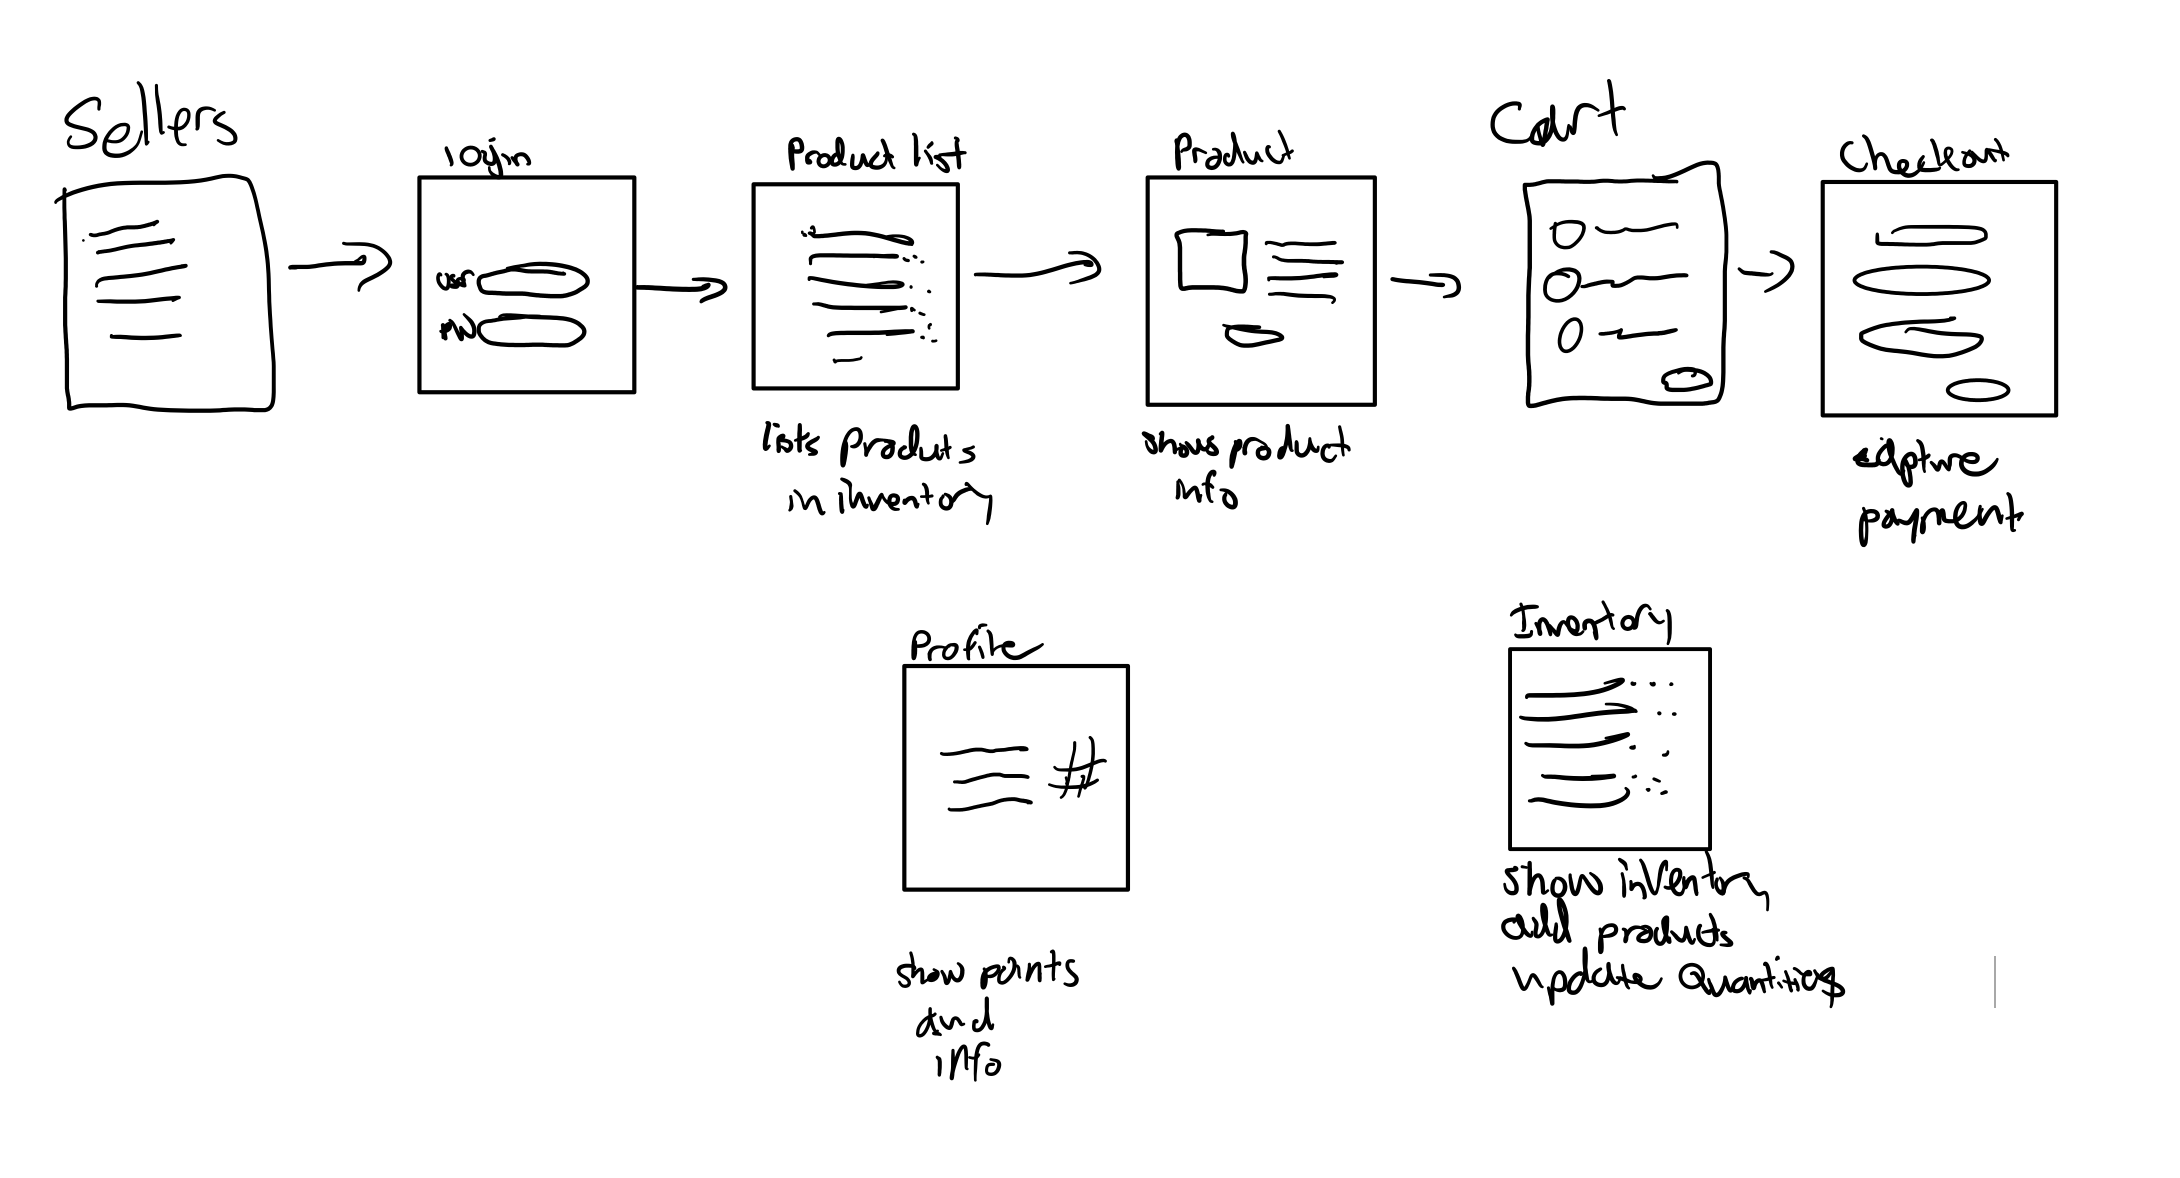 Sellers
login
user
PW
Product list
lists products
in inventory
Product
shows product
info
Cart
Checkout
capture
payment
Profile
#
show points
and
info
Inventory
show inventory
add products
update Quantities